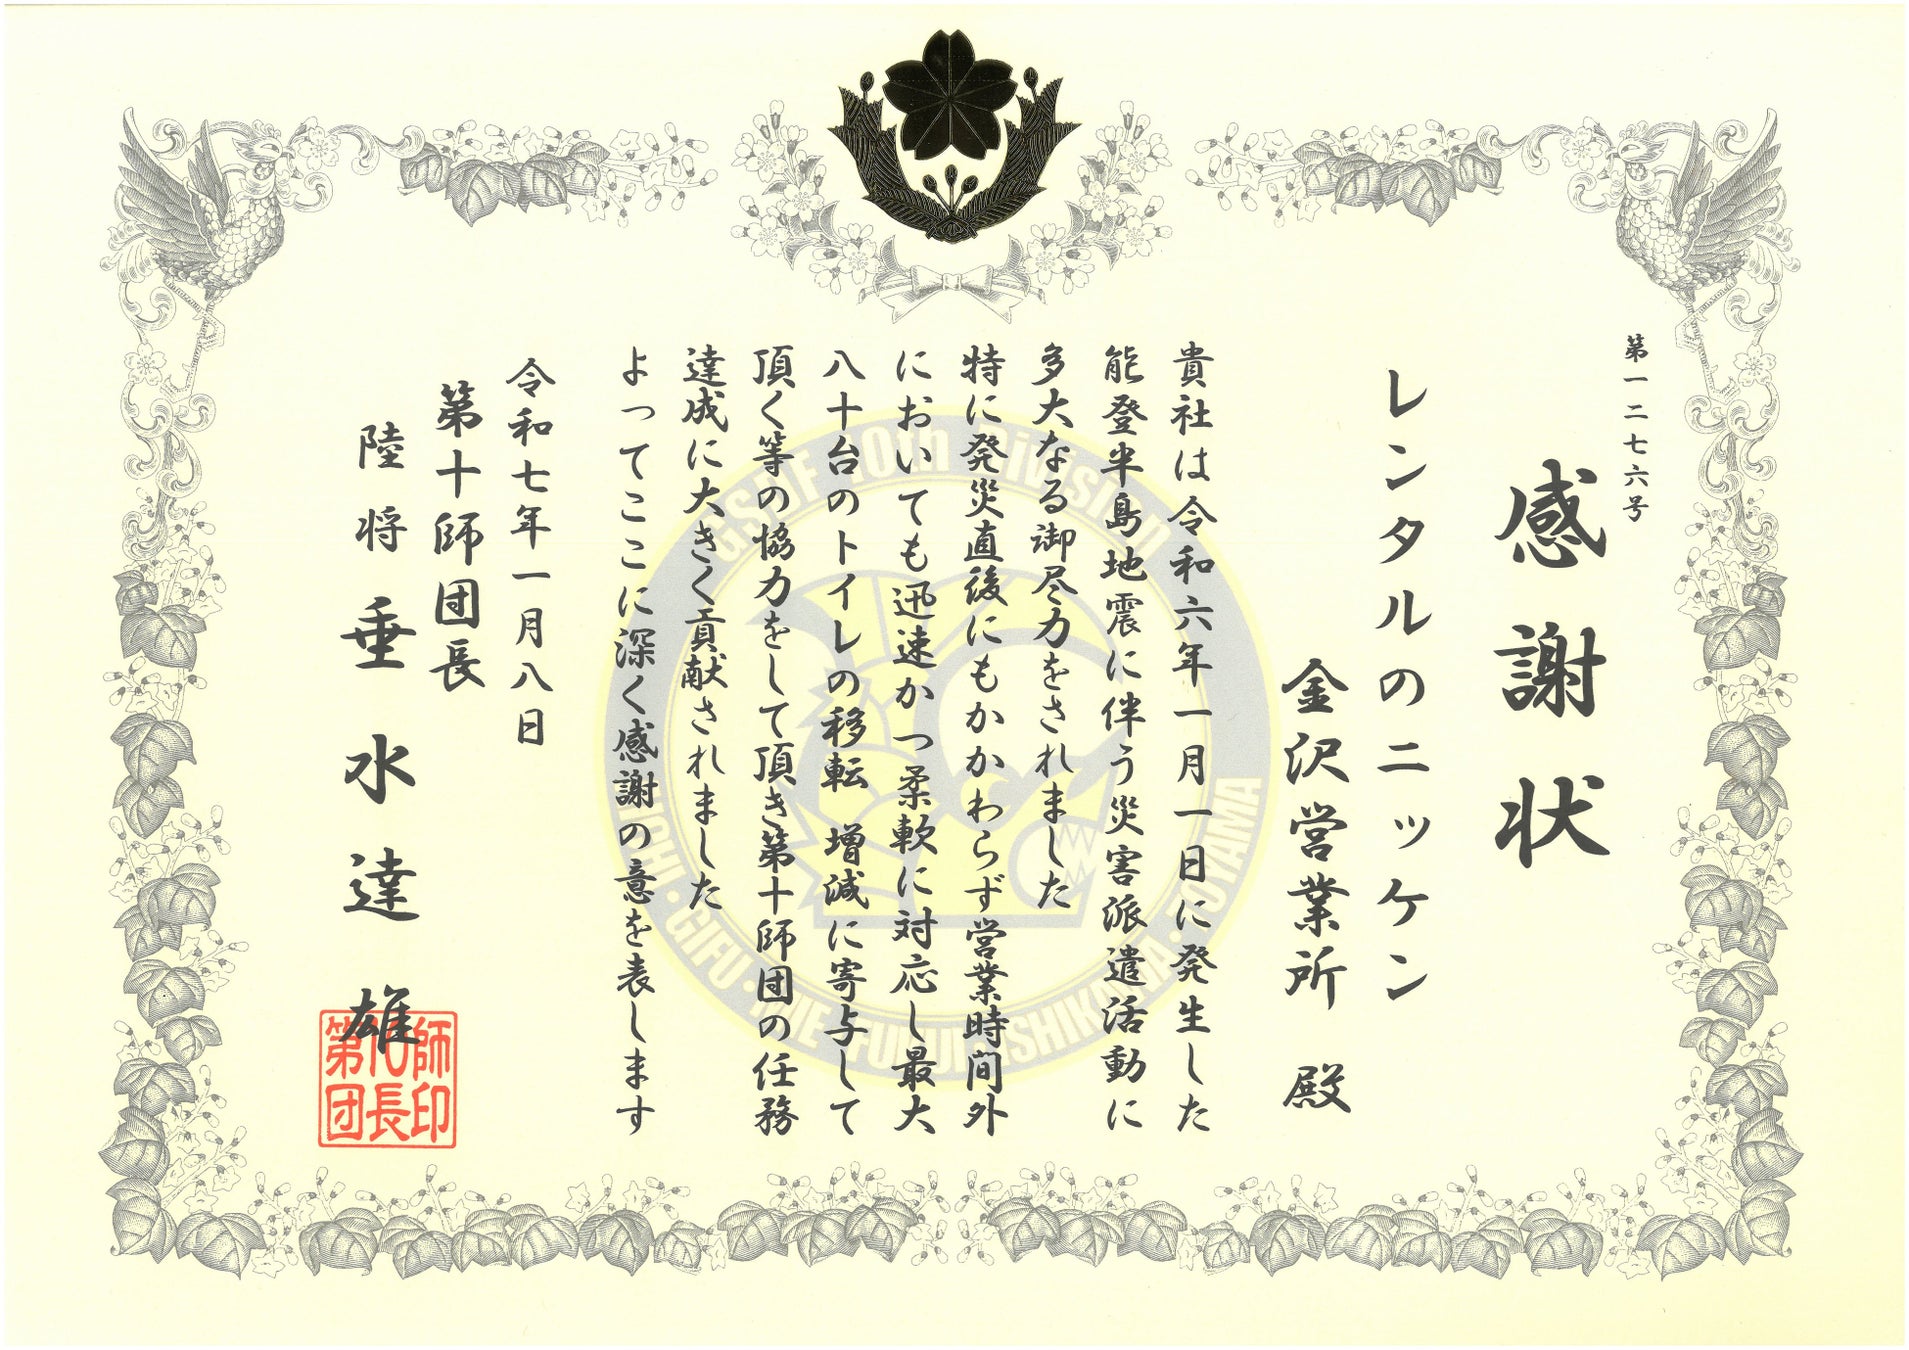 第一二七六号
感謝状
レンタルのニッケン
金沢営業所 殿
貴社は令和六年一月一日に発生した
能登半島地震に伴う災害派遣活動に
多大なる御尽力をされました
特に発災直後にもかかわらず営業時間外
においても迅速かつ柔軟に対応し最大
八十台のトイレの移転 増減に寄与して
頂く等の協力をして頂き第十師団の任務
達成に大きく貢献されました
よってここに深く感謝の意を表します
令和七年一月八日
第十師団長
陸将 垂水達雄
師印
長
第団
GSDF 10th Division
AICHI・GIFU・MIE・FUKUI・ISHIKAWA・TOYAMA